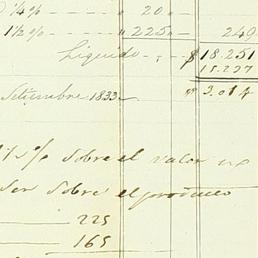 ¼% - - " 20 "
1½% - - " 225 - - 249
Liquido - - $ 18.251
15.237
Setiembre 1833 - $ 3.014
½% sobre el valor
sobre el producto
225
165